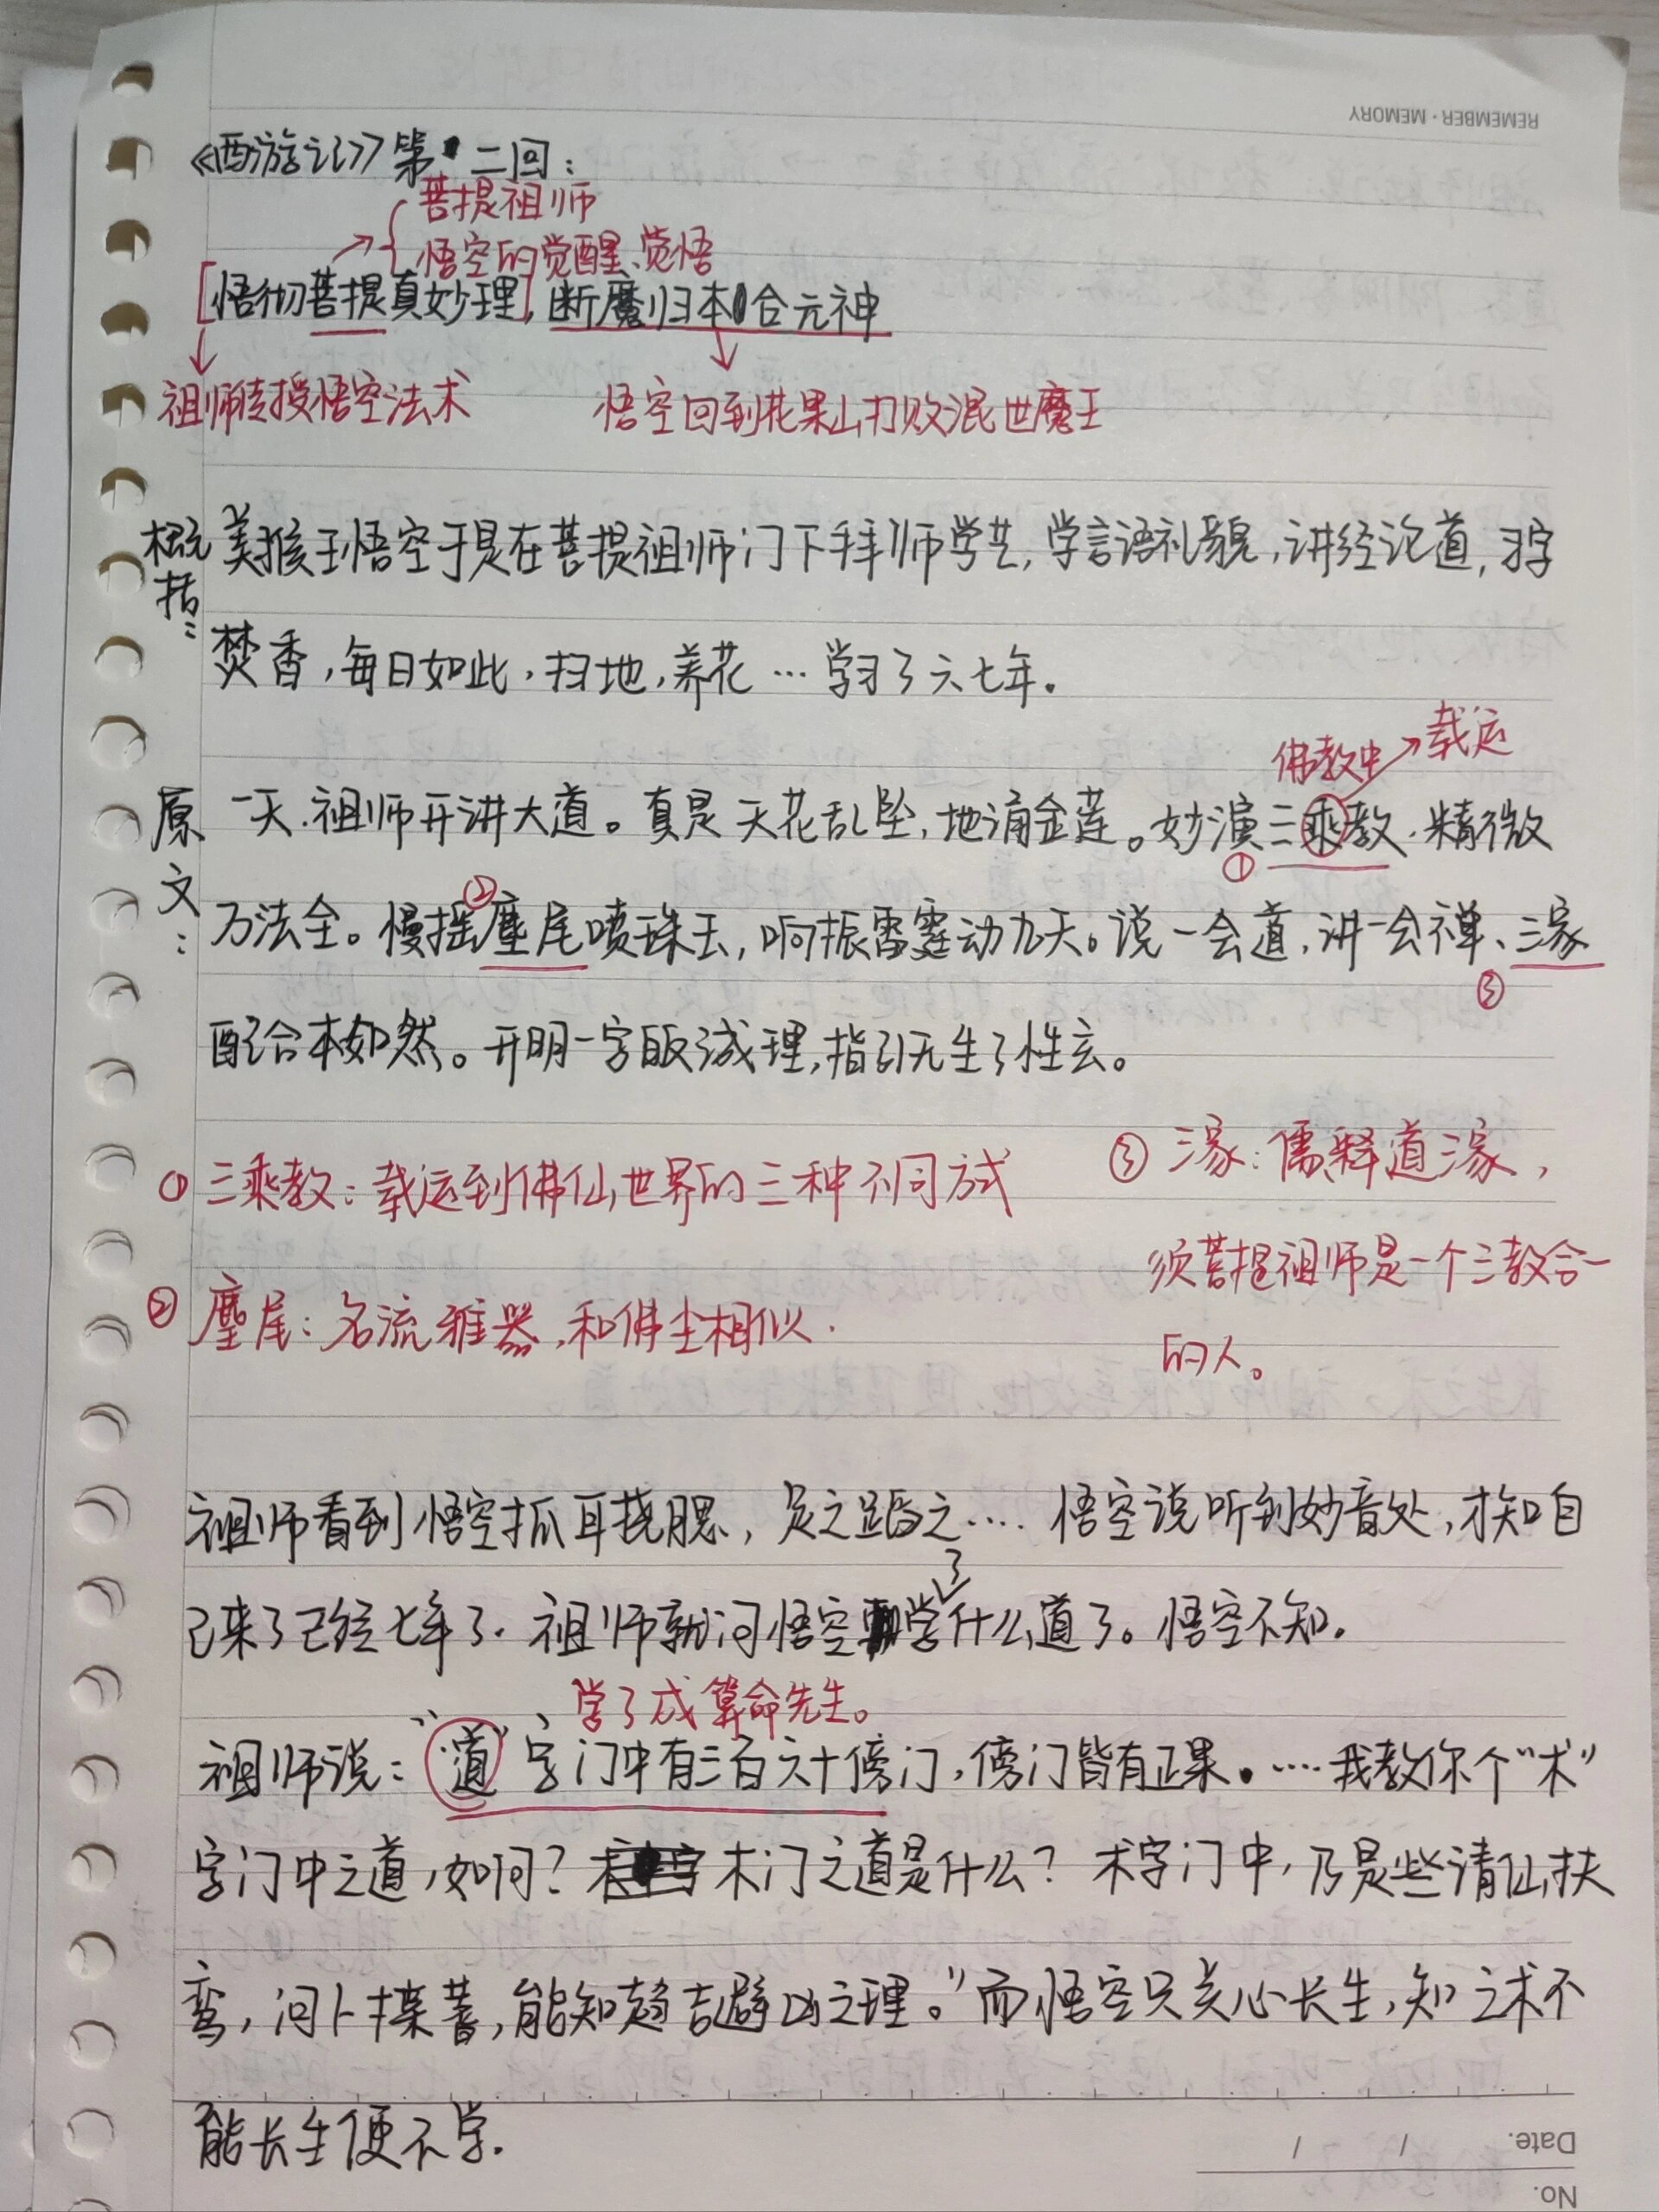 REMEMBER · MEMORY
《西游记》第二回:
菩提祖师
悟空的觉醒、觉悟
[悟彻菩提真妙理], 断魔归本合元神
祖师传授悟空法术 悟空回到花果山打败混世魔王
概括: 美猴王悟空于是在菩提祖师门下拜师学艺, 学言语礼貌, 讲经论道, 习字
焚香, 每日如此, 扫地, 养花…学习了六七年.
佛教中→载运
原文: 一天, 祖师开讲大道。真是天花乱坠, 地涌金莲。妙演三乘教, 精微
① ②
万法全。慢摇麈尾喷珠玉, 响振雷霆动九天。说一会道, 讲一会禅、三家
③
配合本如然。开明一字皈诚理, 指引无生了性玄。
① 三乘教: 载运到佛仙世界的三种不同方式
③ 三家: 儒释道三家,
须菩提祖师是一个三教合一
的人。
② 麈尾: 名流雅器, 和佛尘相似.
祖师看到悟空抓耳挠腮, 足之蹈之…. 悟空说听到妙音处, 才知自
己来了已经七年了. 祖师就问悟空学了什么道了。悟空不知.
学了成算命先生。
祖师说: “道”字门中有三百六十傍门, 傍门皆有正果.….我教你个“术”
字门中之道, 如何? 术门之道是什么? 术字门中, 乃是些请仙扶
鸾, 问卜揲蓍, 能知趋吉避凶之理。”而悟空只关心长生, 知之术不
能长生便不学.
Date. / /
No.